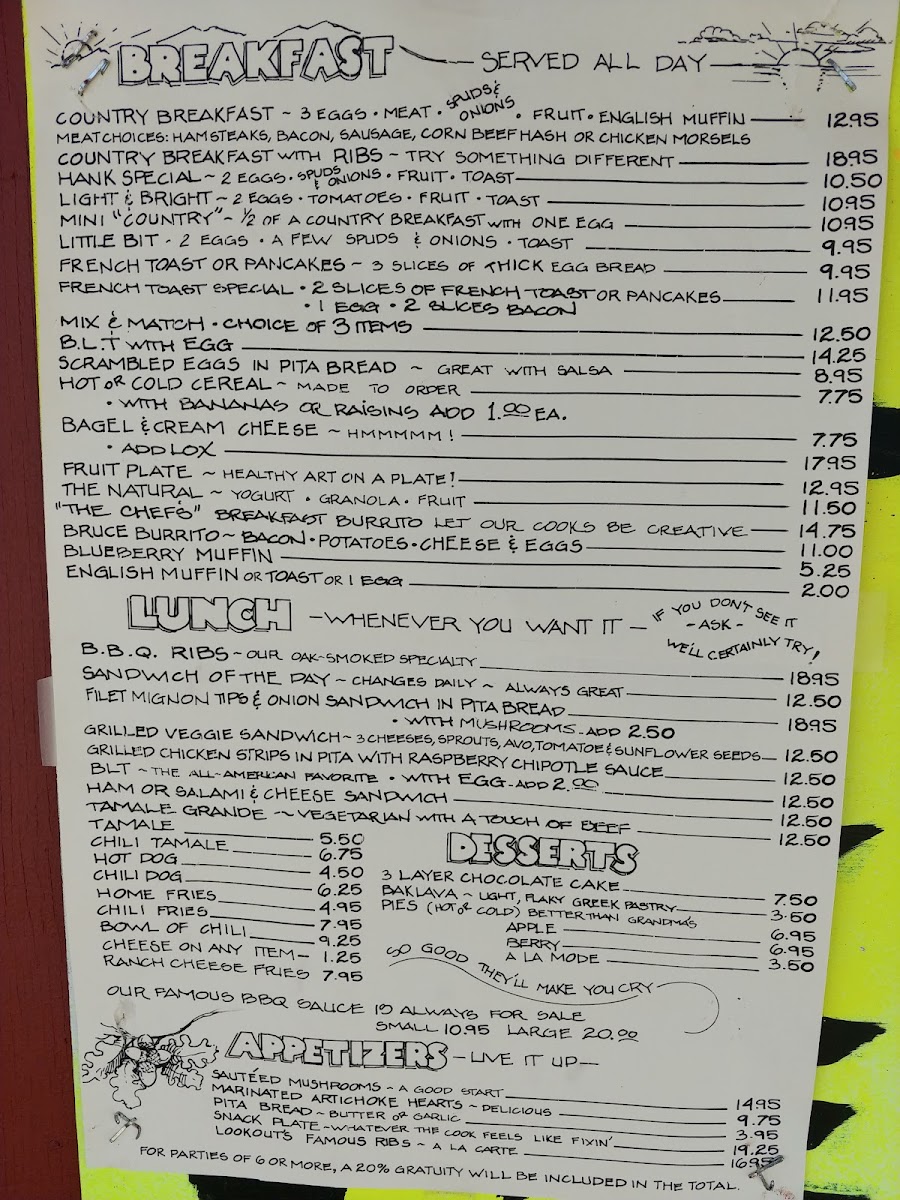 BREAKFAST — SERVED ALL DAY —
COUNTRY BREAKFAST ~ 3 EGGS • MEAT • SPUDS & ONIONS • FRUIT • ENGLISH MUFFIN — 12.95
MEAT CHOICES: HAM STEAKS, BACON, SAUSAGE, CORN BEEF HASH OR CHICKEN MORSELS
COUNTRY BREAKFAST WITH RIBS ~ TRY SOMETHING DIFFERENT — 18.95
HANK SPECIAL ~ 2 EGGS • SPUDS & ONIONS • FRUIT • TOAST — 10.50
LIGHT & BRIGHT ~ 2 EGGS • TOMATOES • FRUIT • TOAST — 10.95
MINI "COUNTRY" ~ 1/2 OF A COUNTRY BREAKFAST WITH ONE EGG — 10.95
LITTLE BIT • 2 EGGS • A FEW SPUDS & ONIONS • TOAST — 9.95
FRENCH TOAST OR PANCAKES ~ 3 SLICES OF THICK EGG BREAD — 9.95
FRENCH TOAST SPECIAL • 2 SLICES OF FRENCH TOAST OR PANCAKES — 11.95
• 1 EGG • 2 SLICES BACON
MIX & MATCH • CHOICE OF 3 ITEMS — 12.50
B.L.T WITH EGG — 14.25
SCRAMBLED EGGS IN PITA BREAD ~ GREAT WITH SALSA — 8.95
HOT OR COLD CEREAL ~ MADE TO ORDER — 7.75
• WITH BANANAS OR RAISINS ADD 1.00 EA.
BAGEL & CREAM CHEESE ~ HMMMMM! — 7.75
• ADD LOX — 17.95
FRUIT PLATE ~ HEALTHY ART ON A PLATE! — 12.95
THE NATURAL ~ YOGURT • GRANOLA • FRUIT — 11.50
"THE CHEF'S" BREAKFAST BURRITO LET OUR COOKS BE CREATIVE — 14.75
BRUCE BURRITO ~ BACON • POTATOES • CHEESE & EGGS — 11.00
BLUEBERRY MUFFIN — 5.25
ENGLISH MUFFIN OR TOAST OR 1 EGG — 2.00
LUNCH — WHENEVER YOU WANT IT —
IF YOU DON'T SEE IT
- ASK -
WE'LL CERTAINLY TRY!
B.B.Q. RIBS ~ OUR OAK-SMOKED SPECIALTY — 18.95
SANDWICH OF THE DAY ~ CHANGES DAILY ~ ALWAYS GREAT — 12.50
FILET MIGNON TIPS & ONION SANDWICH IN PITA BREAD — 18.95
• WITH MUSHROOMS - ADD 2.50
GRILLED VEGGIE SANDWICH ~ 3 CHEESES, SPROUTS, AVO, TOMATOE & SUNFLOWER SEEDS — 12.50
GRILLED CHICKEN STRIPS IN PITA WITH RASPBERRY CHIPOTLE SAUCE — 12.50
BLT ~ THE ALL-AMERICAN FAVORITE • WITH EGG - ADD 2.00 — 12.50
HAM OR SALAMI & CHEESE SANDWICH — 12.50
TAMALE GRANDE ~ VEGETARIAN WITH A TOUCH OF BEEF — 12.50
TAMALE — 5.50
CHILI TAMALE — 6.75
HOT DOG — 4.50
CHILI DOG — 6.25
HOME FRIES — 4.95
CHILI FRIES — 7.95
BOWL OF CHILI — 9.25
CHEESE ON ANY ITEM — 1.25
RANCH CHEESE FRIES 7.95
DESSERTS
3 LAYER CHOCOLATE CAKE — 7.50
BAKLAVA ~ LIGHT, FLAKY GREEK PASTRY — 3.50
PIES (HOT OR COLD) BETTER THAN GRANDMA'S
APPLE — 6.95
BERRY — 6.95
A LA MODE — 3.50
SO GOOD THEY'LL MAKE YOU CRY
OUR FAMOUS BBQ SAUCE IS ALWAYS FOR SALE
SMALL 10.95 LARGE 20.00
APPETIZERS — LIVE IT UP —
SAUTÉED MUSHROOMS ~ A GOOD START — 14.95
MARINATED ARTICHOKE HEARTS ~ DELICIOUS — 9.75
PITA BREAD ~ BUTTER OR GARLIC — 3.95
SNACK PLATE ~ WHATEVER THE COOK FEELS LIKE FIXIN' — 19.25
LOOKOUT'S FAMOUS RIBS ~ A LA CARTE — 16.95
FOR PARTIES OF 6 OR MORE, A 20% GRATUITY WILL BE INCLUDED IN THE TOTAL.